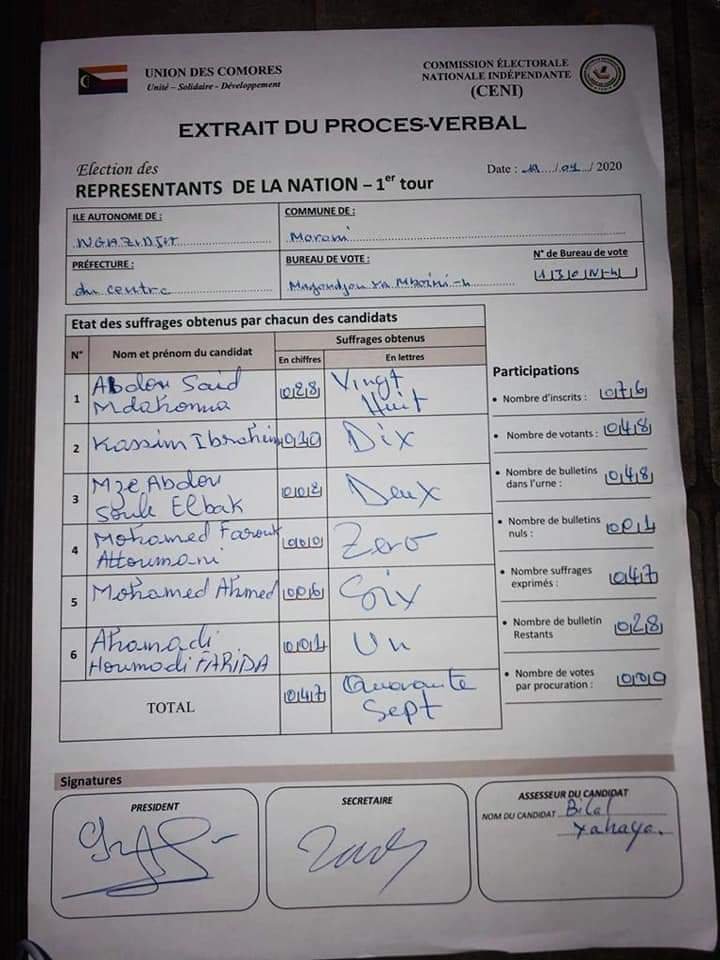 UNION DES COMORES
Unité – Solidaire - Développement
COMMISSION ÉLECTORALE
NATIONALE INDÉPENDANTE
(CENI)
EXTRAIT DU PROCES-VERBAL
Election des
Date : 19/01/ 2020
REPRESENTANTS DE LA NATION – 1er tour
ILE AUTONOME DE :
NGAZIDJIT
COMMUNE DE :
Moroni
PRÉFECTURE :
du centre
BUREAU DE VOTE :
N° de Bureau de vote
Etat des suffrages obtenus par chacun des candidats
N° Nom et prénom du candidat Suffrages obtenus
En chiffres En lettres
1 Abdou Said Mdahoma 028 Vingt Huit
2 Kassim Ibrahim 010 Dix
3 Mze Abdou Soule Elbak 002 Deux
4 Mohamed Farouk Attoumani 000 Zero
5 Mohamed Ahmed 006 Six
6 Ahamadi Houmadi FARIDA 001 Un
TOTAL 047 Quarante Sept
Participations
• Nombre d'inscrits : 076
• Nombre de votants : 048
• Nombre de bulletins dans l'urne : 048
• Nombre de bulletins nuls : 001
• Nombre suffrages exprimés : 047
• Nombre de bulletin Restants 028
• Nombre de votes par procuration : 000
Signatures
PRESIDENT
SECRETAIRE
ASSESSEUR DU CANDIDAT
NOM DU CANDIDAT Bilal
Yahaya.